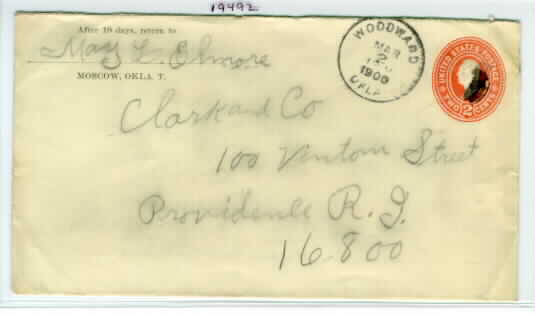 19492
After 10 days, return to
May L. Elmore
MOSCOW, OKLA. T.
WOODWARD
MAR
2
1900
OKLA
UNITED STATES POSTAGE
TWO 2 CENTS
Clark and Co
100 Street
Providence R. I.
16800